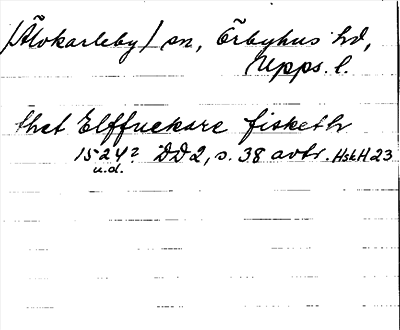 /Älvkarleby/ sn, Örbyhus hd,
Upps. l.
thet Elffuekare fisketh
1524? DD2, s. 38 avtr. HskH 23
u.d.